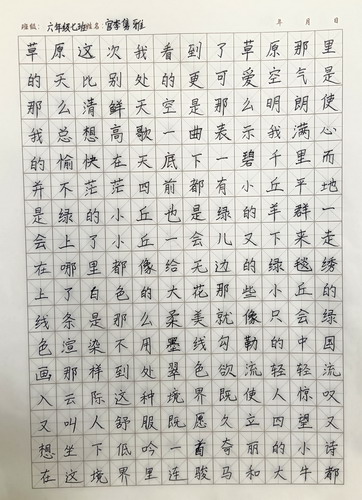 班级：六年级七班姓名：宫李隽雅 年 月 日
草原这次我看到了草原那里
的天比别处的更可爱空气是
那么清鲜天空是那么明朗使
我总想高歌一曲表示我满心
的愉快在天底下一碧千里而
并不茫茫四前都有小丘平地
是绿的小丘也是绿的羊群一
会上了小丘一会儿又下来走
在哪里都像给无边的绿毯绣
上了白色的大花那些小丘的
线条是那么柔美就像只会绿
色渲染不用墨线勾勒的中国
画那样到处翠色欲流轻轻流
入云际这种境界既使人惊叹
又叫人舒服既愿久立四望又
想坐下低吟一首奇丽的小诗
在这境界里连骏马和大牛都